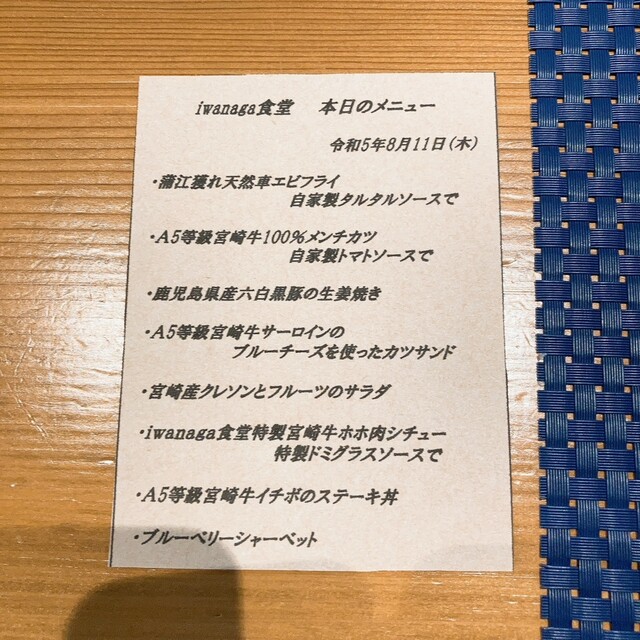 iwanaga食堂 本日のメニュー
令和5年8月11日(木)
・蒲江獲れ天然車エビフライ
自家製タルタルソースで
・A5等級宮崎牛100%メンチカツ
自家製トマトソースで
・鹿児島県産六白黒豚の生姜焼き
・A5等級宮崎牛サーロインの
ブルーチーズを使ったカツサンド
・宮崎産クレソンとフルーツのサラダ
・iwanaga食堂特製宮崎牛ホホ肉シチュー
特製ドミグラスソースで
・A5等級宮崎牛イチボのステーキ丼
・ブルーベリーシャーベット